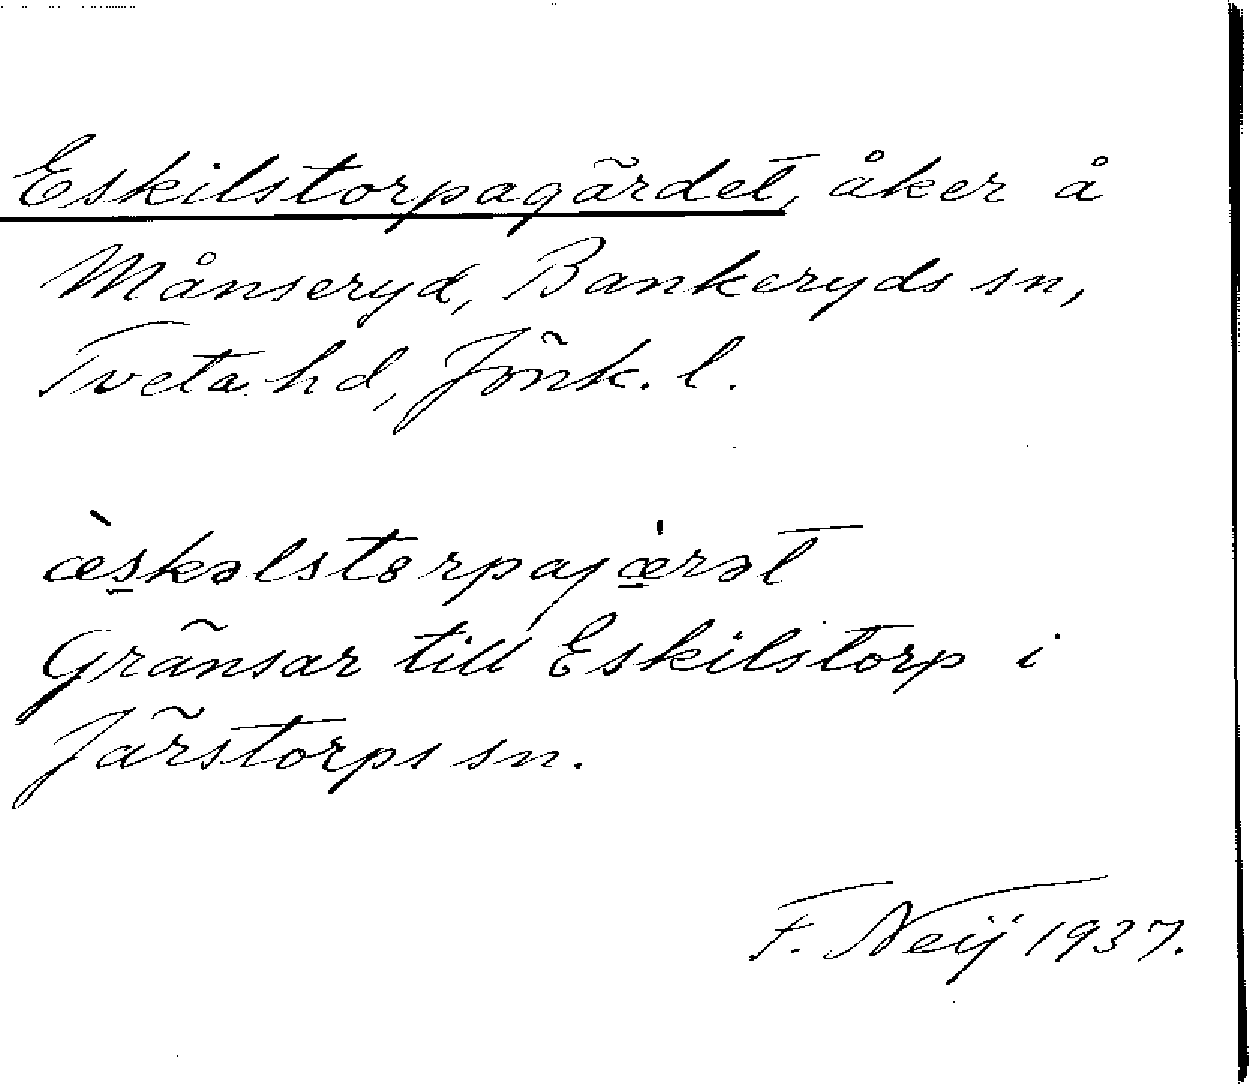 Eskilstorpagärdet, åker å
Månseryd, Bankeryds sn,
Tveta hd, Jönk. l.
æ̀skəlstorpajæ̇rət
Gränsar till Eskilstorp i
Järstorps sn.
F. Neij 1937.